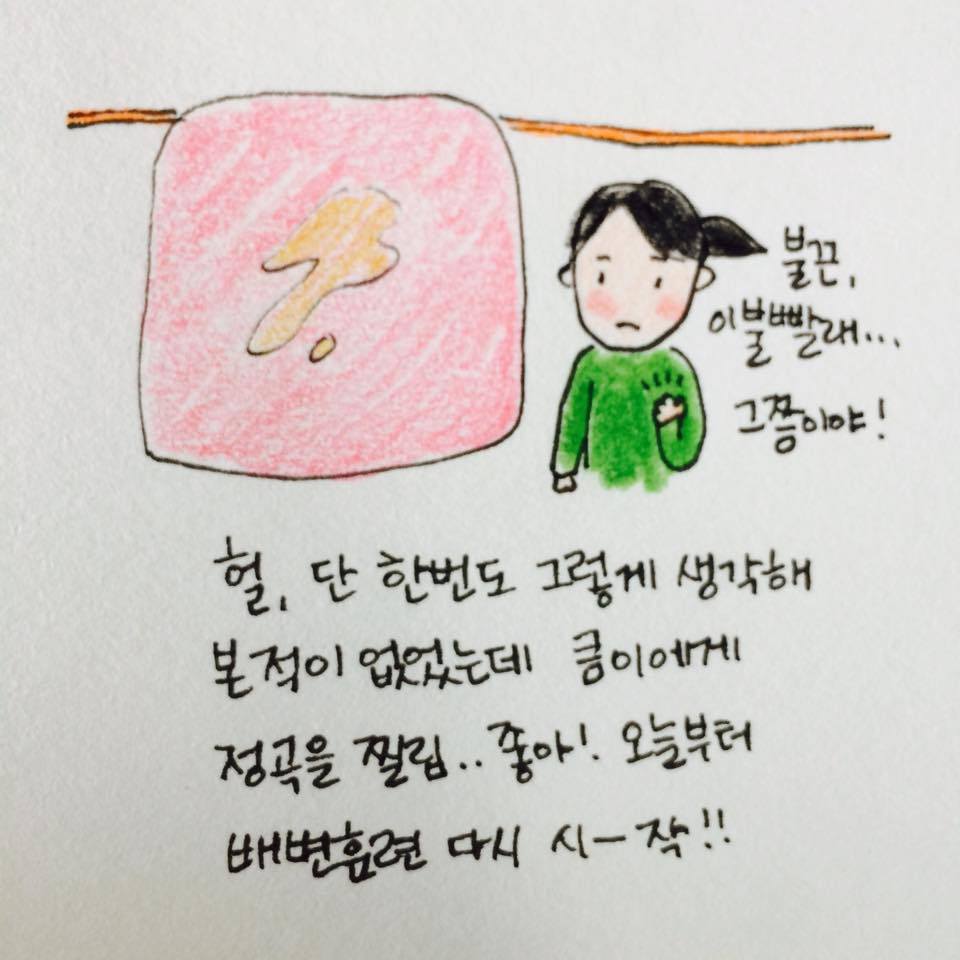 불끈,
이불빨래...
그쯤이야!
헐, 단 한번도 그렇게 생각해
본적이 없었는데 큼이에게
정곡을 찔림.. 좋아! 오늘부터
배변훈련 다시 시-작!!